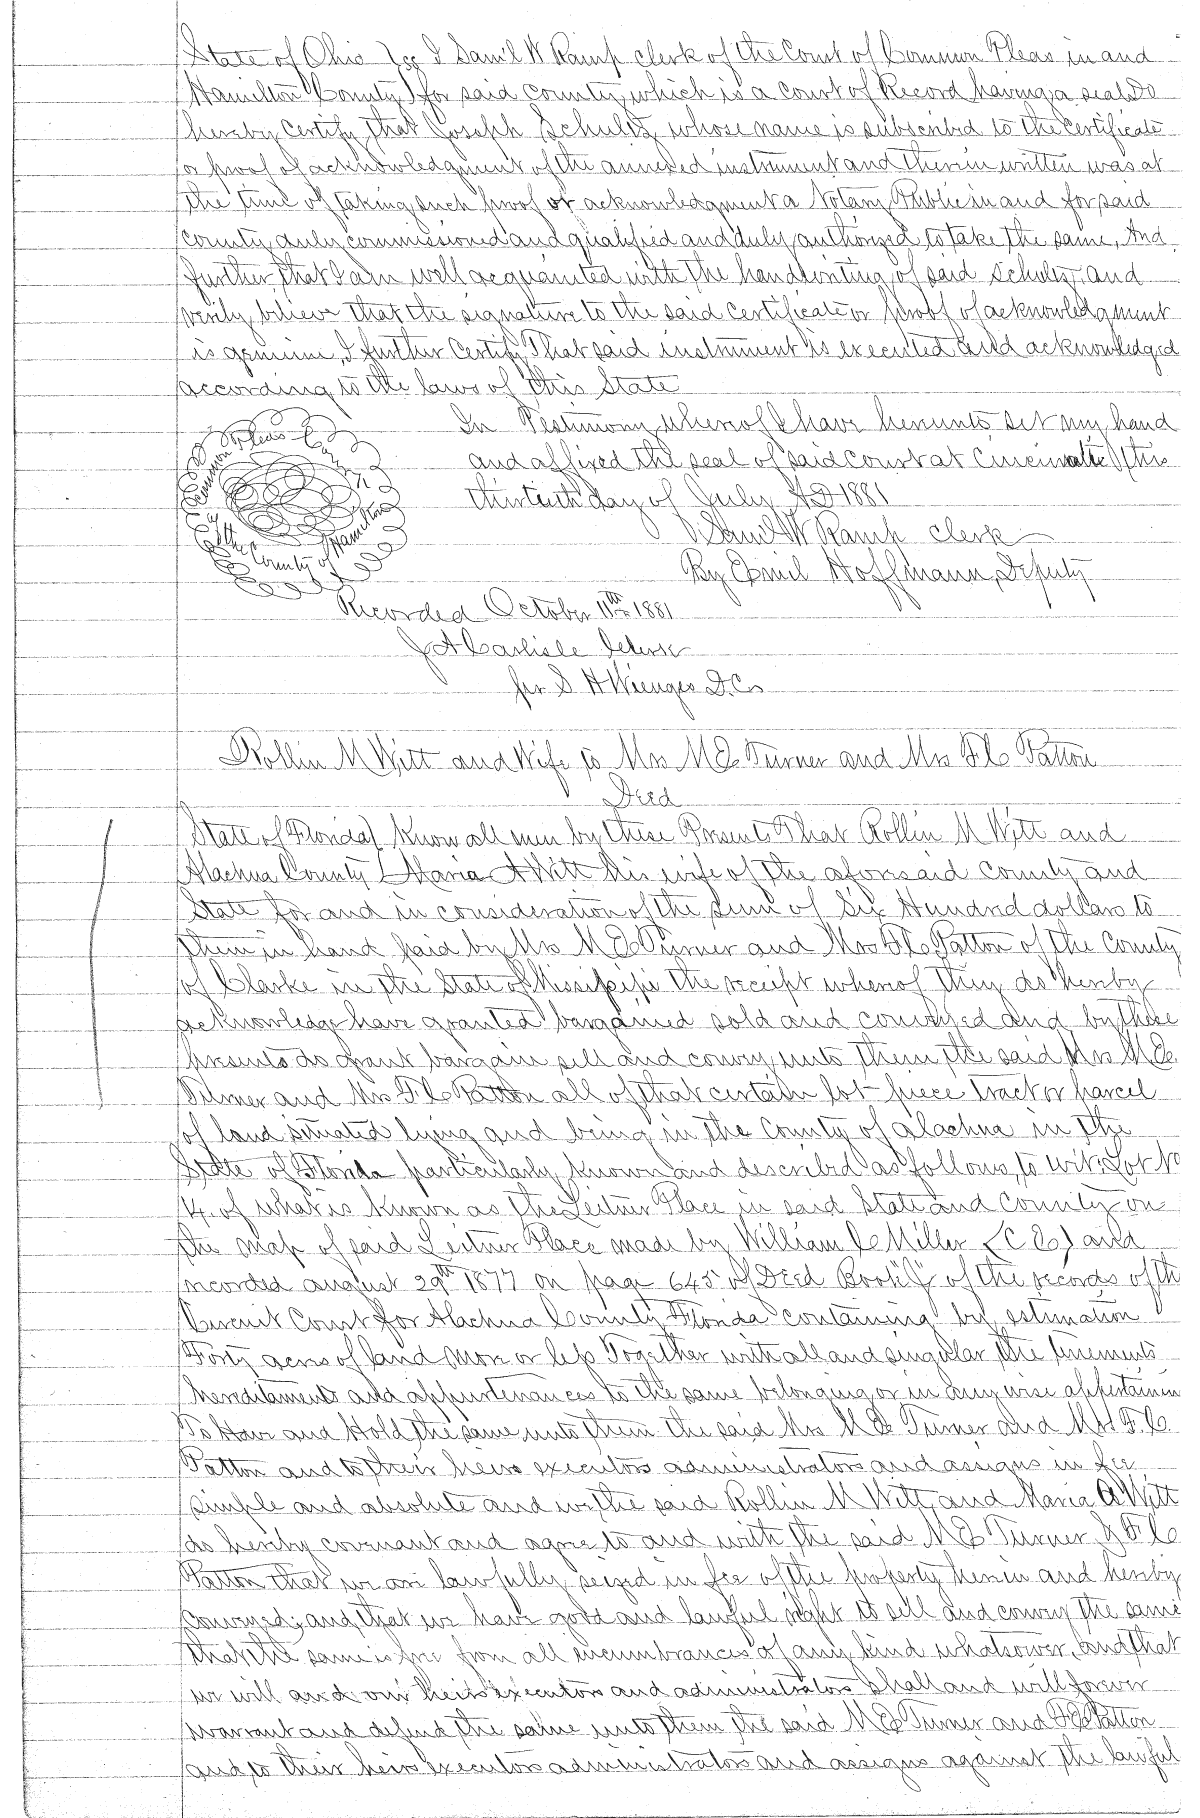 State of Ohio } ss I Saml W Ramp clerk of the Court of Common Pleas in and
Hamilton County } for said county, which is a court of Record having a seal Do
hereby Certify, that Joseph Schultz whose name is subscribed to the certificate
or proof of acknowledgment of the annexed instrument and therein written was at
the time of taking such proof or acknowledgment a Notary Public in and for said
county, duly commissioned and qualified and duly authorized to take the same, And
further, that I am well acquainted with the handwriting of said Schultz, and
verily believe that the signature to the said certificate or proof of acknowledgment
is genuine, I further Certify That said instrument is executed and acknowledged
according to the laws of this State
In Testimony whereof I have hereunto set my hand
and affixed the seal of said court at Cincinnati this
thirtieth day of July AD 1881
Common Pleas
of the County of Hamilton
Saml W Ramp clerk
By Emil Hoffmann, Deputy
Recorded October 11th 1881
J A Carlisle Clerk
per S H Wienges D.C.
Rollin M Witt and Wife to Mrs M E Turner and Mrs F C Patton
Deed
State of Florida } Know all men by these Presents That Rollin M Witt and
Alachua County } Maria A Witt his wife of the aforesaid county and
State for and in consideration of the sum of Six Hundred dollars to
them in hand paid by Mrs M E Turner and Mrs F C Patton of the County
of Clarke in the State of Mississippi the receipt whereof they do hereby
acknowledge have granted bargained sold and conveyed and by these
presents do grant bargain sell and convey unto them the said Mrs M E
Turner and Mrs F C Patton all of that certain lot piece tract or parcel
of land situated lying and being in the County of Alachua in the
State of Florida particularly known and described as follows, to wit: Lot No
4. of what is known as the Leitner Place in said State and County on
the map of said Leitner Place made by William C Miller (C E) and
recorded august 29th 1877 on page 645 of Deed Book "J" of the records of th
Circuit Court for Alachua County Florida containing by estimation
Forty acres of land more or less Together with all and singular the tenements
hereditaments and appurtenances to the same belonging or in any wise appertainin
To Have and Hold the same unto them the said Mrs M E Turner and Mrs F. C.
Patton and to their heirs executors administrators and assigns in fee
simple and absolute and we the said Rollin M Witt and Maria A Witt
do hereby covenant and agree to and with the said M E Turner & F C
Patton that we are lawfully seized in fee of the property herein and hereby
conveyed; and that we have good and lawful right to sell and convey the same
that the same is free from all incumbrances of any kind whatsoever, and that
we will and our heirs executors and administrators shall and will forever
warrant and defend the same unto them the said M E Turner and F C Patton
and to their heirs executors administrators and assigns against the lawful